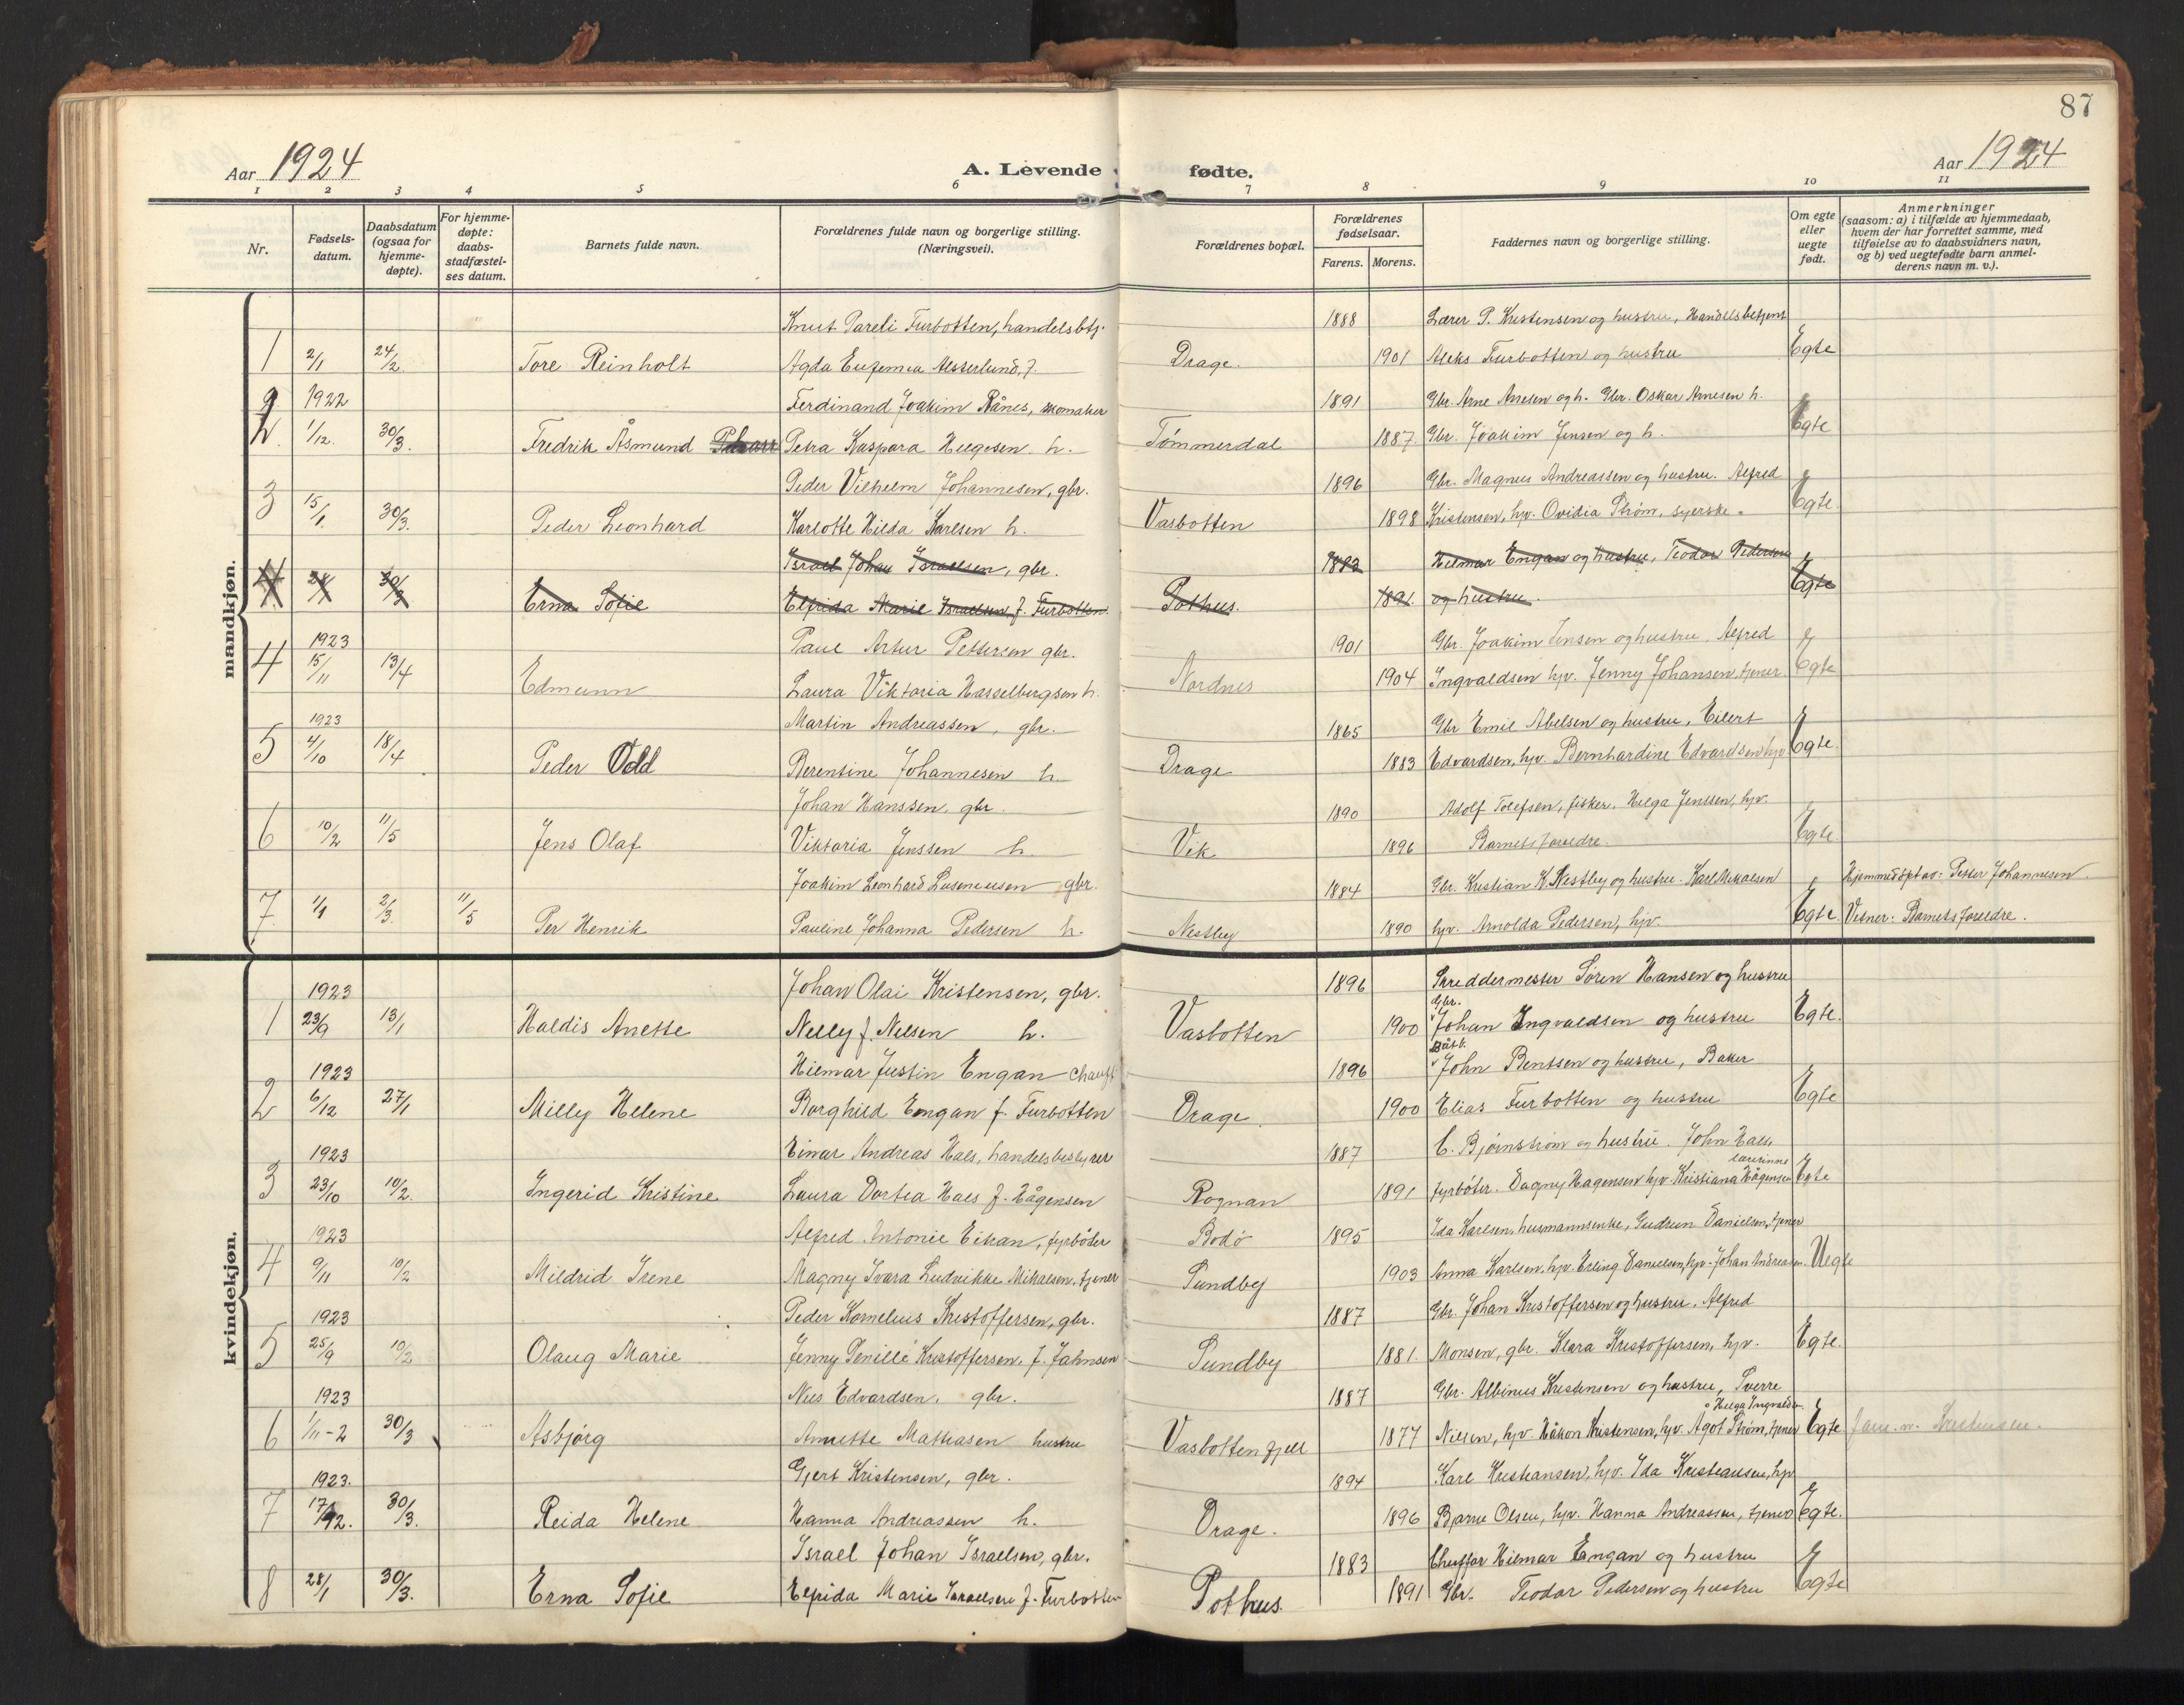 87
Aar 1924
A. Levende fødte.
Aar 1924
1 2 3 4 5 6 7 8 9 10 11
Nr.
Fødsels-
datum.
Daabsdatum
(ogsaa for
hjemme-
døpte).
For hjemme-
døpte:
daabs-
stadfæstel-
ses datum.
Barnets fulde navn.
Forældrenes fulde navn og borgerlige stilling.
(Næringsvei).
Forældrenes bopæl.
Forældrenes
fødselsaar.
Farens. Morens.
Faddernes navn og borgerlige stilling.
Om egte
eller
uegte
født.
Anmerkninger
(saasom: a) i tilfælde av hjemmedaab,
hvem der har forrettet samme, med
tilføielse av to daabsvidners navn,
og b) ved uegtefødte barn anmel-
derens navn m. v.).
mandkjøn.
Knut Pareli Furbotten, handelsbtj. 1888 Lærer P. Kristensen og hustru, Handelsbetjent
1 2/1 24/2 Tore Reinholt Agda Eugenia Alsterlund, f. Drage. 1901 Aleks Furbotten og hustru Egte
1922 Ferdinand Joakim Rånes, skomaker 1891 Gbr. Arne Arnesen og h. Gbr. Oskar Arnesen h.
2. 1/12. 30/3. Fredrik Åsmund Petra Kaspara Helgesen h. Tömmerdal 1887. Gbr. Joakim Jensen og h. Egte
Peder Vilhelm Johannesen, gbr. 1896 Gbr. Magnus Andreassen og hustru. Alfred
3 15/1 30/3. Peder Leonhard Karlotte Hilda Karlsen h. Vasbotten 1898 Kristensen, hjv. Ovidia Strøm, syerske. Egte
Israel Johan Israelsen, gbr. 1883 Hilmar Engan og hustru, Teodor Pedersen
4 28/1 30/3 Erna Sofie Elfrida Marie Israelsen f. Furbotten. Pothus. 1891. og hustru. Egte
1923 Paul Artur Pettersen gbr. 1901 Gbr. Joakim Jensen og hustru, Alfred
4 15/11 13/4 Edmunn Laura Viktoria Hasselbergsen h. Nordnes 1904 Ingvaldsen hjv. Jenny Johansen, tjener. Egte
1923 Martin Andreassen, gbr. 1865 Gbr Emil Abelsen og hustru, Eilert
5 4/10 18/4 Peder Odd Berentine Johannesen h. Drage 1883 Edvardsen, hjv. Bernhardine Edvardsen hjv. Egte.
Johan Hanssen, gbr. 1890 Adolf Tolefsen, fisker, Helga Jenssen, hjv.
6 10/2 11/5 Jens Olaf Viktoria Jenssen h. Vik 1896 Barnets foreldre. Egte.
Joakim Leonhard gbr. 1884 Gbr. Kristian K. Nestby og hustru. Karl Mikalsen Hjemmedöpt av: Petter Johannesen.
7 1/1 2/3. 11/5 Per Henrik Pauline Johanna Pedersen h. Nestby 1890 hjv. Arnolda Pedersen, hjv. Egte. Vitner: Barnets foreldre.
kvindekjøn.
1923 Johan Olai Kristensen, gbr. 1896 Skreddermester Sören Hansen og hustru
Gbr.
1 23/9 13/1 Haldis Anette Nelly f. Nilsen h. Vasbotten 1900 Johan Ingvaldsen og hustru Egte.
Båtb.
1923 Hilmar Justin Engan chauff. 1896 John Bentsen og hustru, Baker
2 6/12 27/1 Milly Helene Borghild Engan f. Furbotten Drage. 1900 Elias Furbotten og hustru Egte
1923 Einar Andreas Hals, handelsbestyrer 1887 C. Bjørnstrøm og hustru. John Hals,
lærerinne
3 23/10 10/2. Ingerid Kristine Laura Dortea Hals f. Hågensen Rognan 1891 fyrböter. Dagny Hagensen hjv. Kristiana Hågensen Egte
1923 Alfred Antonie Eikan, fyrböter Bodö 1895 Ida Karlsen, husmannsenke, Gudrun Danielsen, tjener
4 9/11 10/2 Mildrid Irene Magny Svara Ludvikke Mikalsen, tjener Sundby 1903 Anna Karlsen, hjv. Erling Danielsen, hjv. Johan Andreassen. Uegte
1923 Peder Kornelius Kristoffersen, gbr. 1887 Gbr. Johan Kristoffersen og hustru, Alfred
5 25/9 10/2 Olaug Marie Jenny Penille Kristoffersen, f. Jahnsen Sundby 1881. Monsen, gbr. Klara Kristoffersen, hjv. Egte.
1923 Nils Edvardsen, gbr. 1887 Gbr. Albinus Kristensen og hustru, Sverre
o Helga Ingvaldsen.
6 1/11-2 30/3 Asbjørg Annette Mathiasen hustru Vasbotten fjell 1877 Nilsen, hjv. Håkon Kristensen, hjv. Agot Strøm, tjener Egte Kristensen.
1923. Gjert Kristensen, gbr. 1894 Karl Kristiansen, hjv. Ida Kristiansen, hjv.
7 17/12. 30/3. Reida Helene Hanna Andreassen h. Drage. 1896 Bjarne Olsen, hjv. Hanna Andreassen, tjener Egte.
Israel Johan Israelsen, gbr. 1883 Chuffør Hilmar Engan og hustru
8 28/1 30/3. Erna Sofie Elfrida Marie Israelsen f. Furbotten Pothus. 1891 Gbr. Teodor Pedersen og hustru Egte